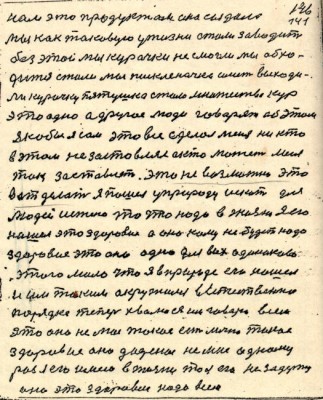 146
141
нам это продуктом она создало
мы как таковую у жизни стали заводить
без этой мы курочки не смогли мы обхо-
дится стали мы
ли курочку петушка стало множество кур
это одно а другое люди говорят об этом
якобы я сам это все сделал меня никто
в этом не заставляе а кто может меня
так заставить. Это не возможно это
вот делать я пошел у природу искат для
людей истено что это надо в жизни я его
нашел это здоровие а оно кому не будет надо
здоровие это оно одно для всех одинаково
этого мало что я в природе его нашел
и им таким окружился в естественно
порядке теперь хвалюся и говорю всем
это оно не мое такое есть лично такое
здоровие оно дадено не мне одному
раз я его имею в жизни то я его не
оно это здоровие надо всем